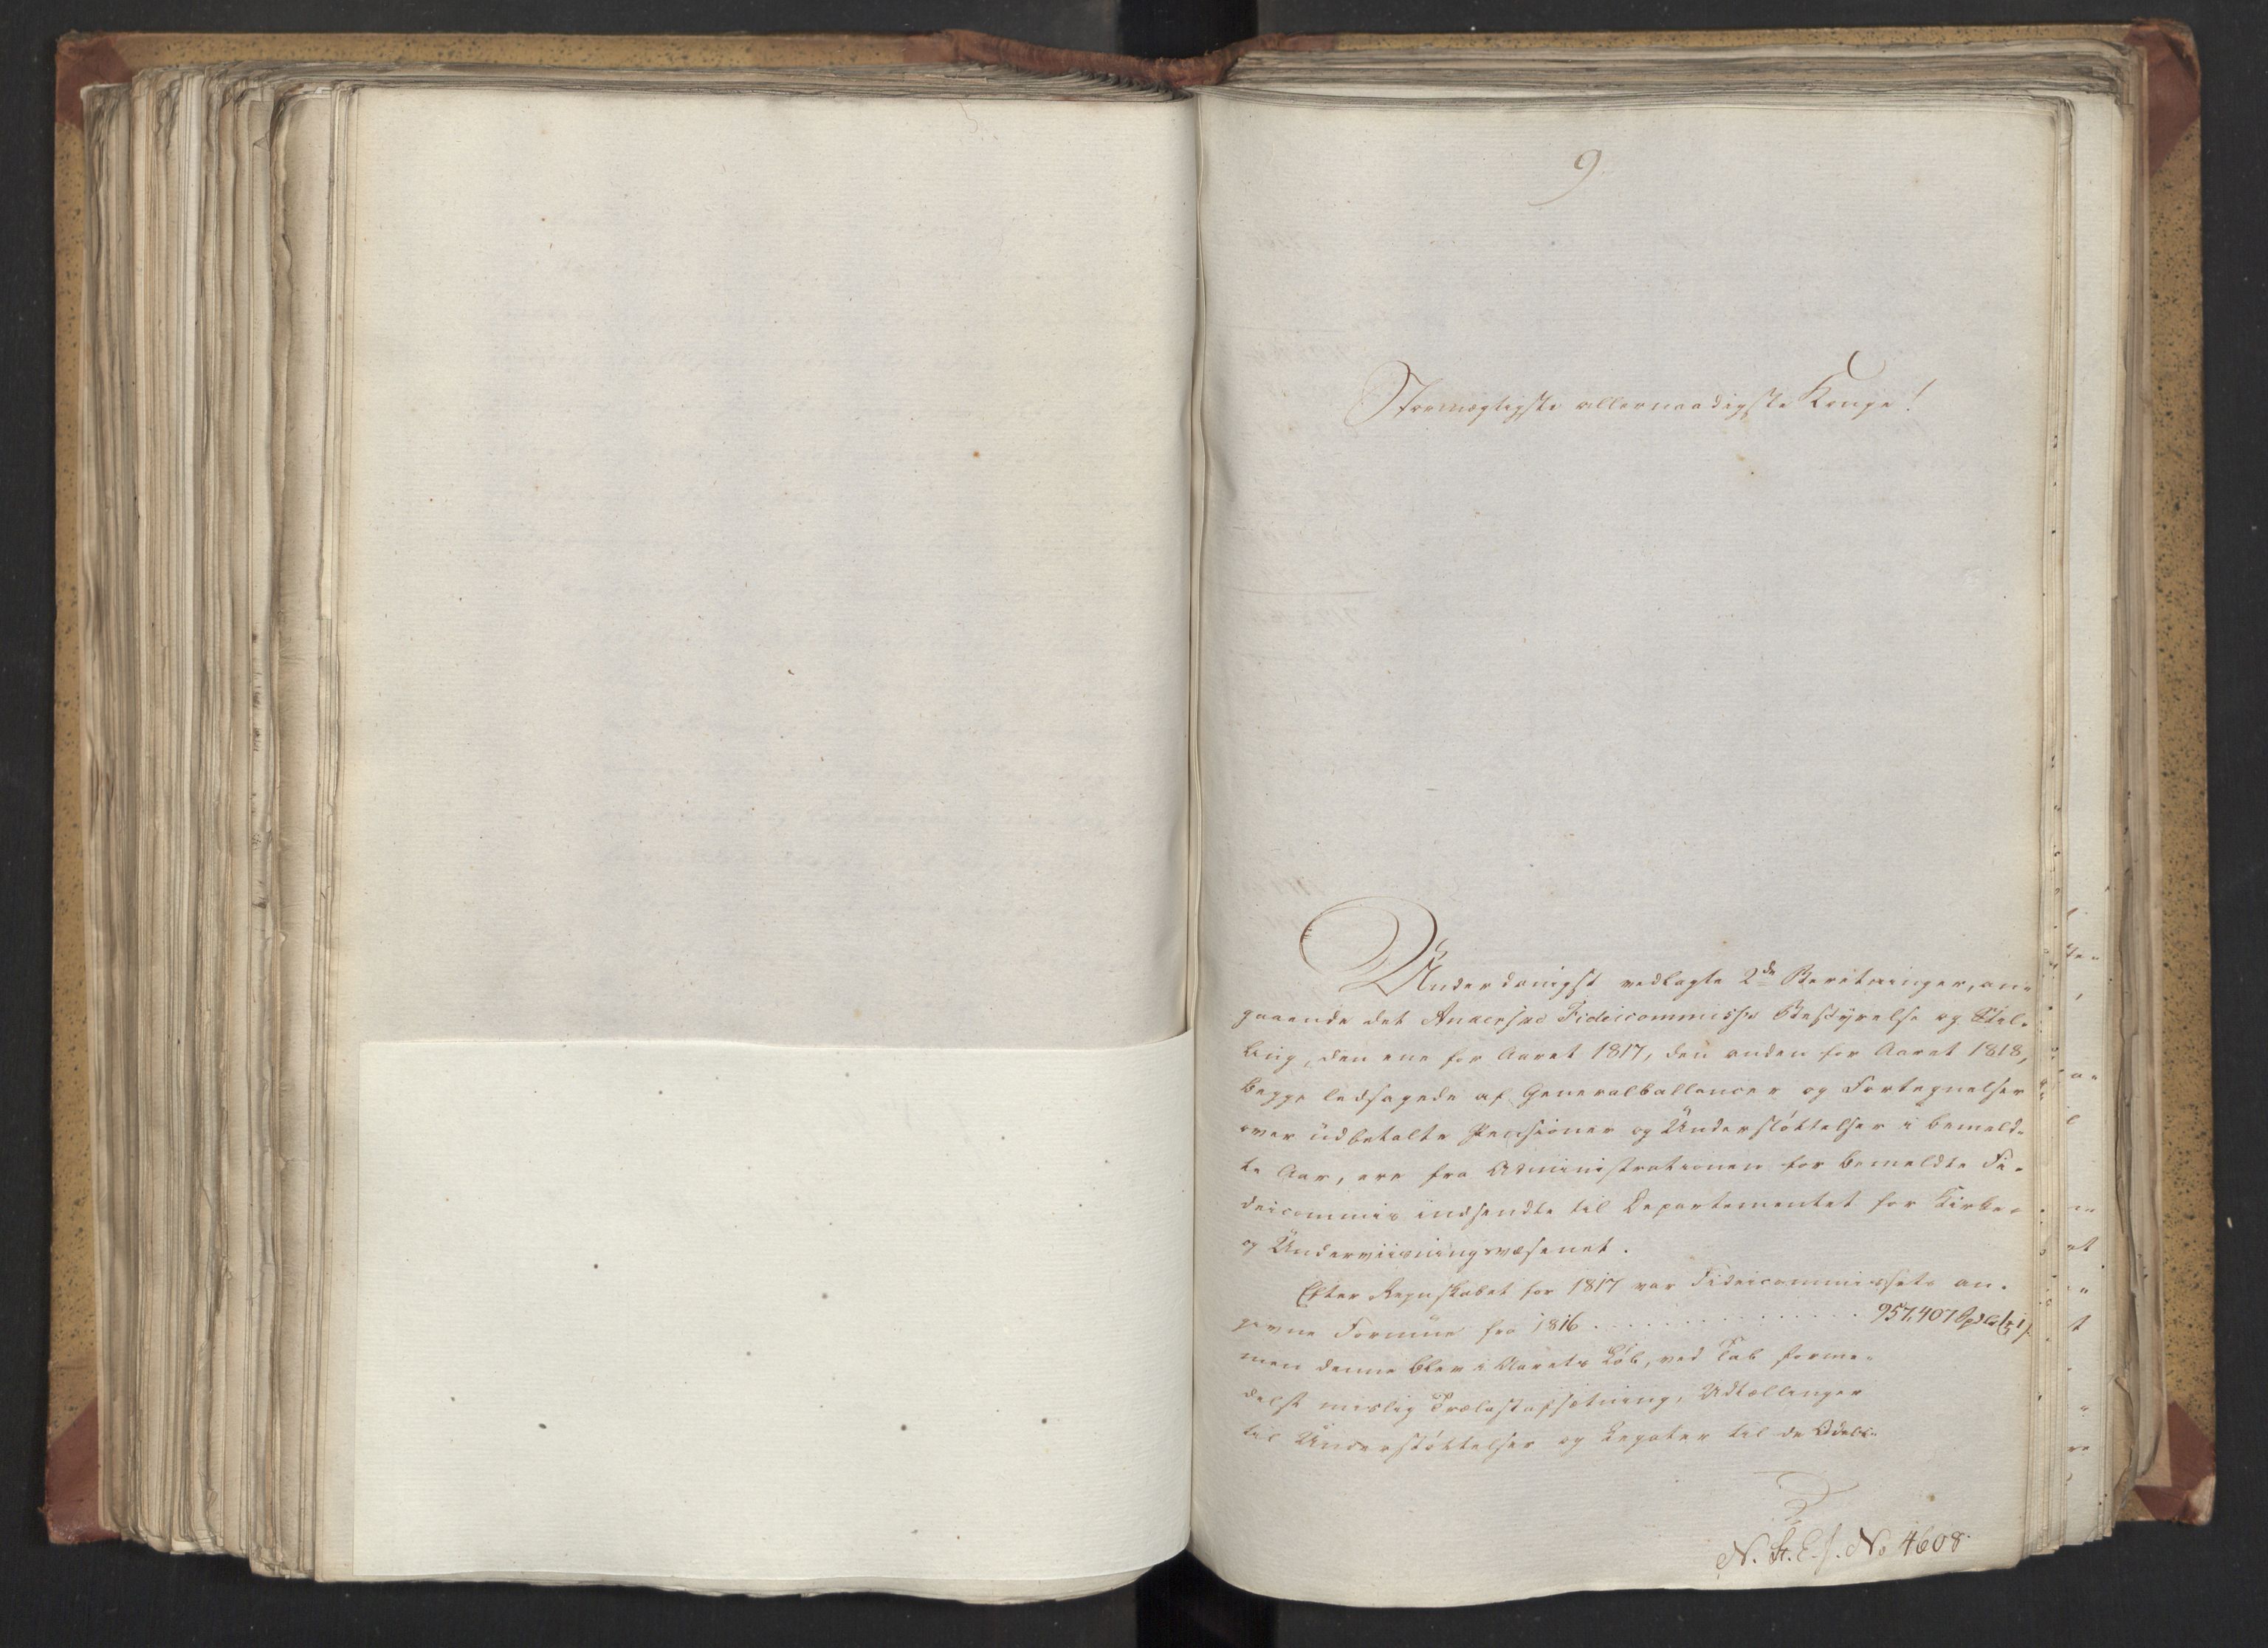 9
Stormægtigste allernaadigste Konge!
Underdanigst vedlagte 2de Beretninger, an-
gaaende det Ankerske Fideicommisses Bestÿrelse og Stil-
ling, den ene for Aaret 1817, den anden for Aaret 1818,
begge ledsagede af Generalballancer og Fortegnelser
over udbetalte Pensioner og Understøttelser i bemeld-
te Aar, ere fra Administrationen for bemeldte Fi-
deicommis indsendte til Departementet for Kirke-
og Underviisningsvæsenet.
Efter Regnskabet for 1817 var Fideicommissets an-
givne Formue fra 1816 . . . . . . . . . . . . . . 957,407 Spd
men denne blev i Aarets Løb, ved Tab forme-
delst mislig Trælastafsætning, Udtællinger
til Understøttelser og Legater til de
N. St. E. s. No 4608.